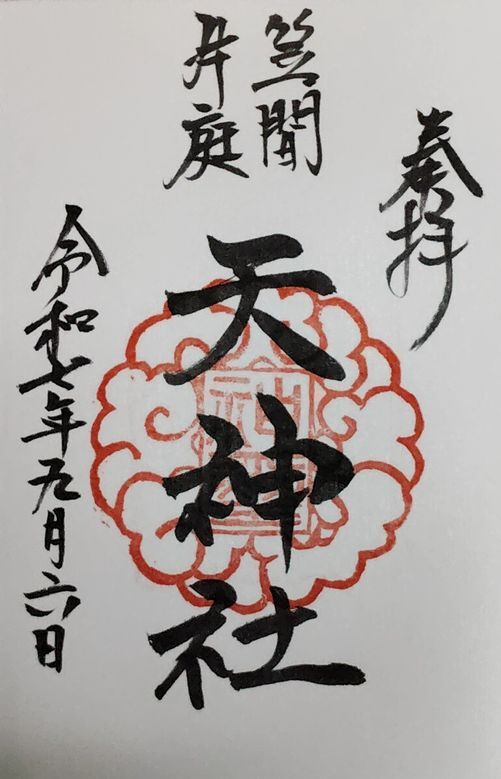 奉拝
笠間
井庭
天神社
令和七年五月六日